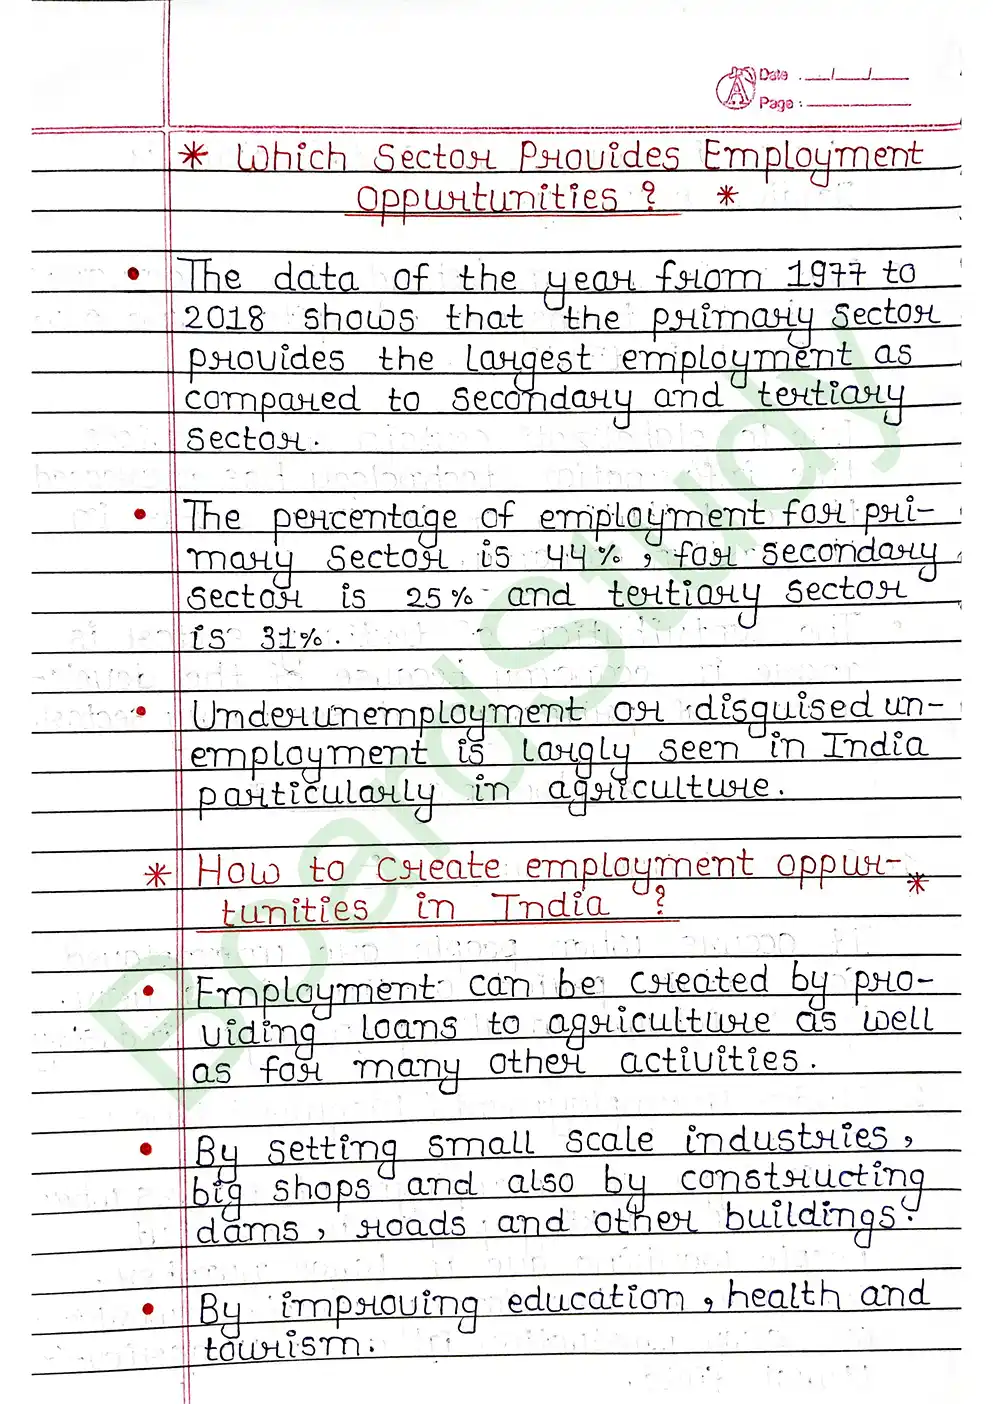 Date : __/__/__
Page : ________
* Which Sector Provides Employment
Oppurtunities ? *
• The data of the year from 1977 to
2018 shows that the primary sector
provides the largest employment as
compared to secondary and tertiary
sector.
• The percentage of employment for pri-
mary sector is 44%, for secondary
sector is 25% and tertiary sector
is 31%.
• Underunemployment or disguised un-
employment is largly seen in India
particularly in agriculture.
* How to create employment oppur- *
tunities in India ?
• Employment can be created by pro-
viding loans to agriculture as well
as for many other activities.
• By setting small scale industries,
big shops and also by constructing
dams, roads and other buildings.
• By improving education, health and
tourism.
BoardStudy